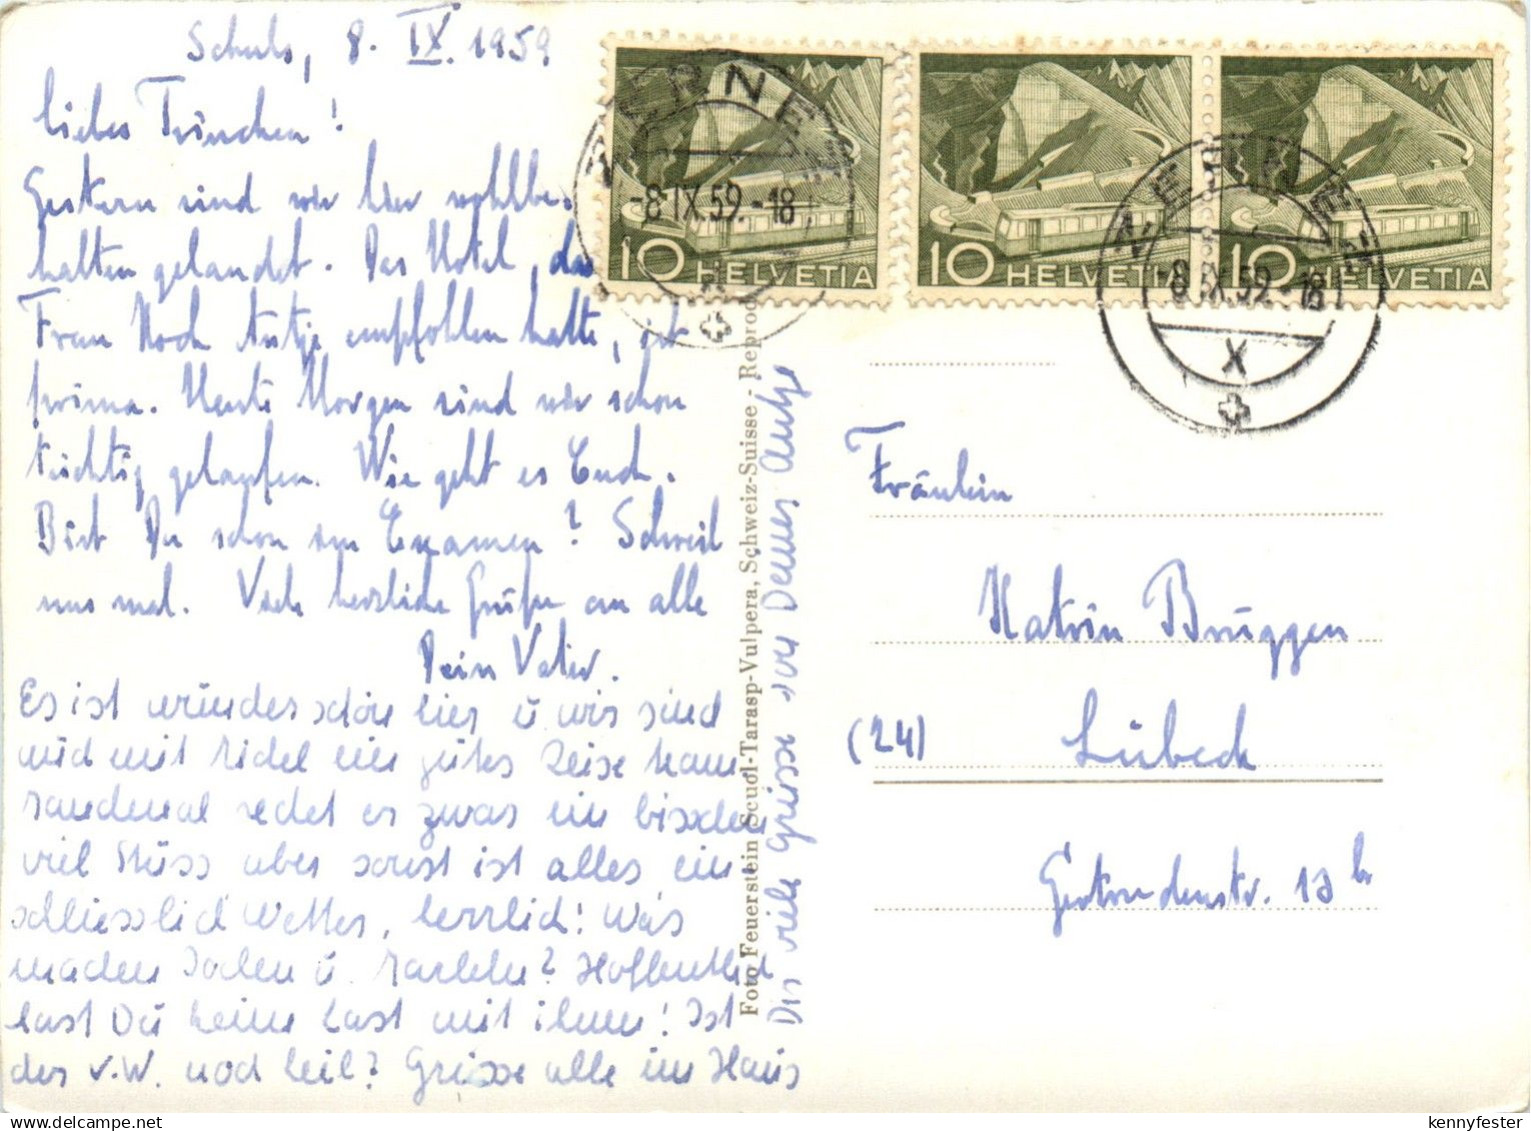 Schuls, 8. IX. 1959
liebes Trinchen!
Gestern sind wir hier wohlbe-
halten gelandet. Das Hotel, das
Frau Koch Antje empfohlen hatte, ist
prima. Heute Morgen sind wir schon
tüchtig gelaufen. Wie geht es Euch.
Bist Du schon im Examen? Schreib
uns mal. Viele herzliche Grüße an alle
Dein Vater.
Es ist wunderschön hier u wir sind
und mit ein gutes
manchmal redet es zwar ein bisschen
viel aber sonst ist alles, ein-
schliesslich Wetter, herrlich! Was
machen Jochen u. ? Hoffentlich
hast Du keine Last mit ihnen! Ist
der v.W. noch heil? Grüsse alle im Haus
Dir viele Grüsse von Deiner Antje
Foto Feuerstein Scuol-Tarasp-Vulpera, Schweiz-Suisse - Reprod
ZERNEZ
-8.IX.59.-18
10 HELVETIA
10 HELVETIA
10 HELVETIA
ZERNEZ
-8.IX.59.-18
X
Fräulein
Katrin Brüggen
(24) Lübeck
Gertrudenstr. 13 b
kennyfester